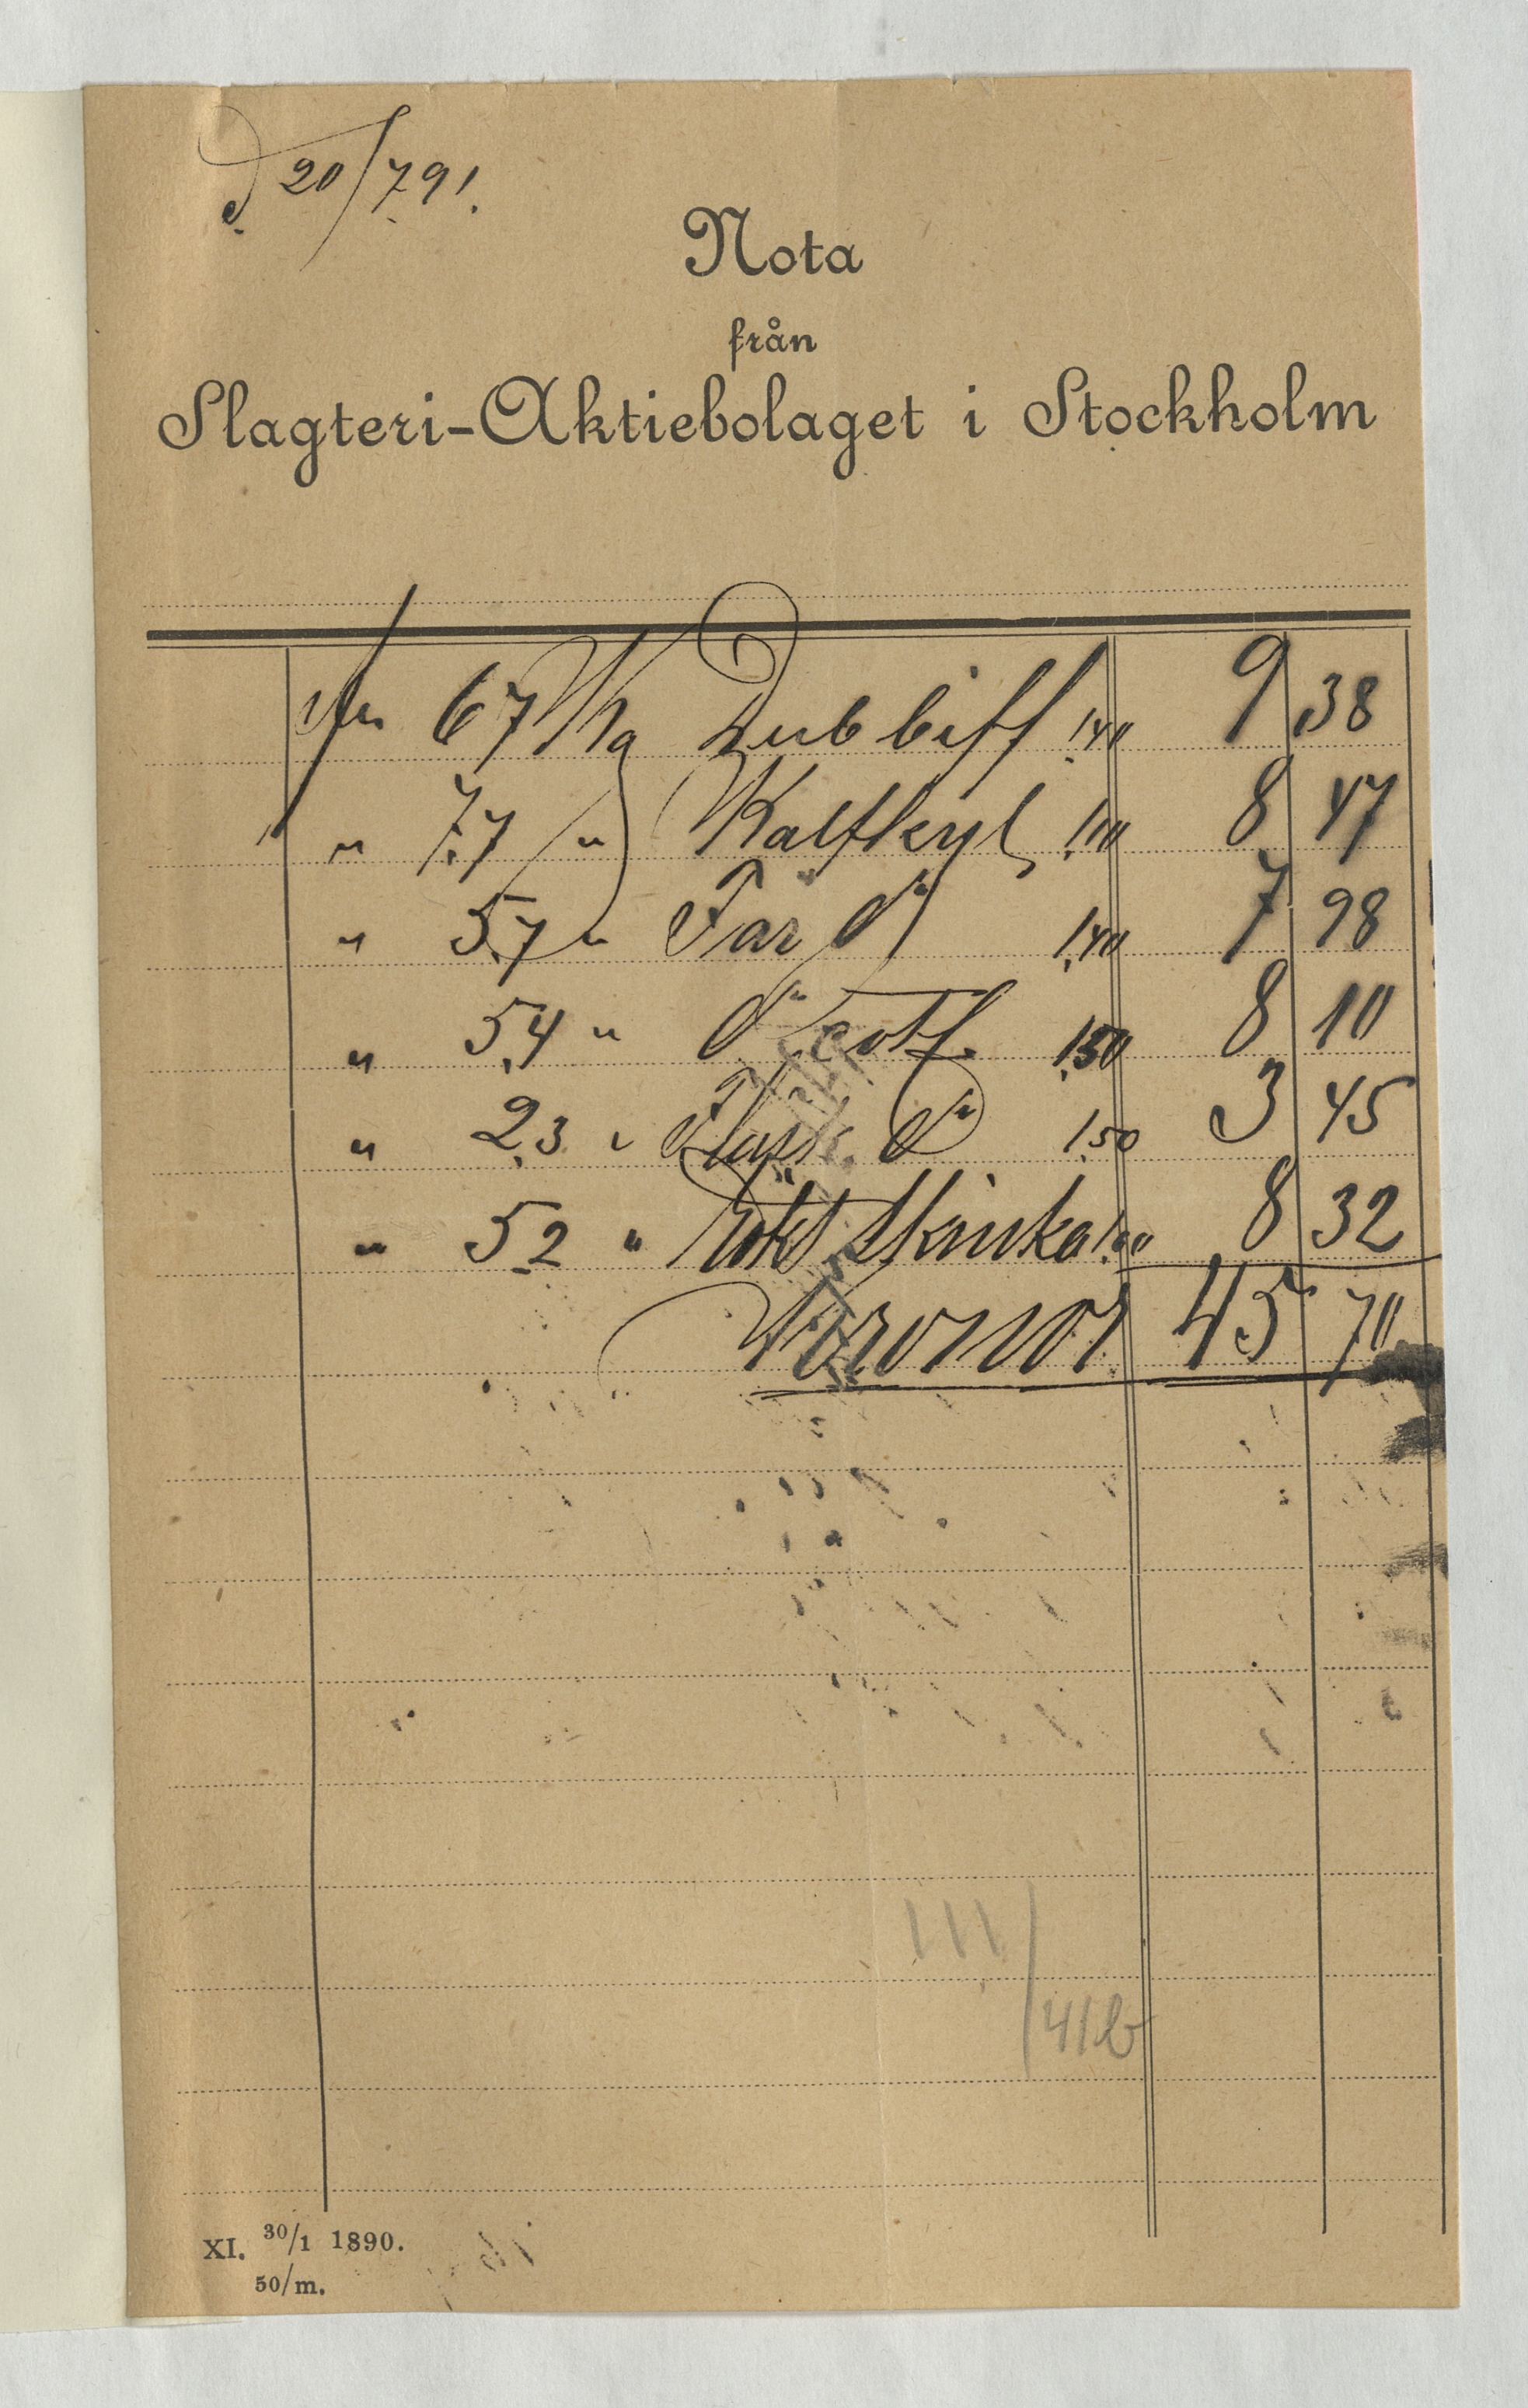 d. 20/7 91.
Nota
från
Slagteri-Aktiebolaget i Stockholm
67 Kg Dubbiff 1.40 9 38
" 7.7 " Kalfkyl 1.10 8 47
" 5.7 " Får do 1.40 7 98
" 5.4 " do Cotl. 1.50 8 10
" 2.3 " Fläsk do 1.50 3 45
" 5.2 " Rökt Skinka 1.60 8 32
Kronor 45 70
111/41b
XI. 30/1 1890.
50/m.